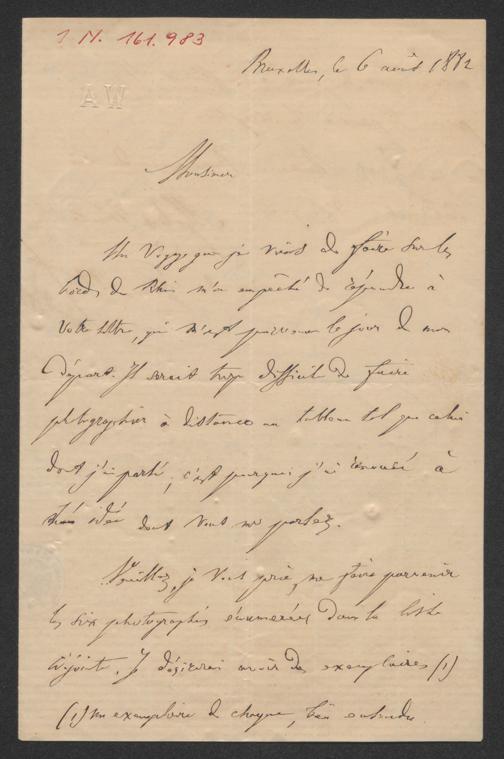 J N. 161.983
Bruxelles, le 6 août 1872
AW
Monsieur
Un voyage que je viens de faire sur les
bords du Rhin m'a empêché de répondre à
votre lettre, qui m'est parvenue le jour de mon
départ. Il serait trop difficile de faire
photographier à distance un tableau tel que celui
dont j'ai parlé, c'est pourquoi j'ai renoncé à
idée dont vous me parlez.
Veuillez, je vous prie, me faire parvenir
les six photographies énumérées dans la liste
ci-jointe. Je désirerai avoir des exemplaires (1)
(1) un exemplaire de chaque, bien entendu.